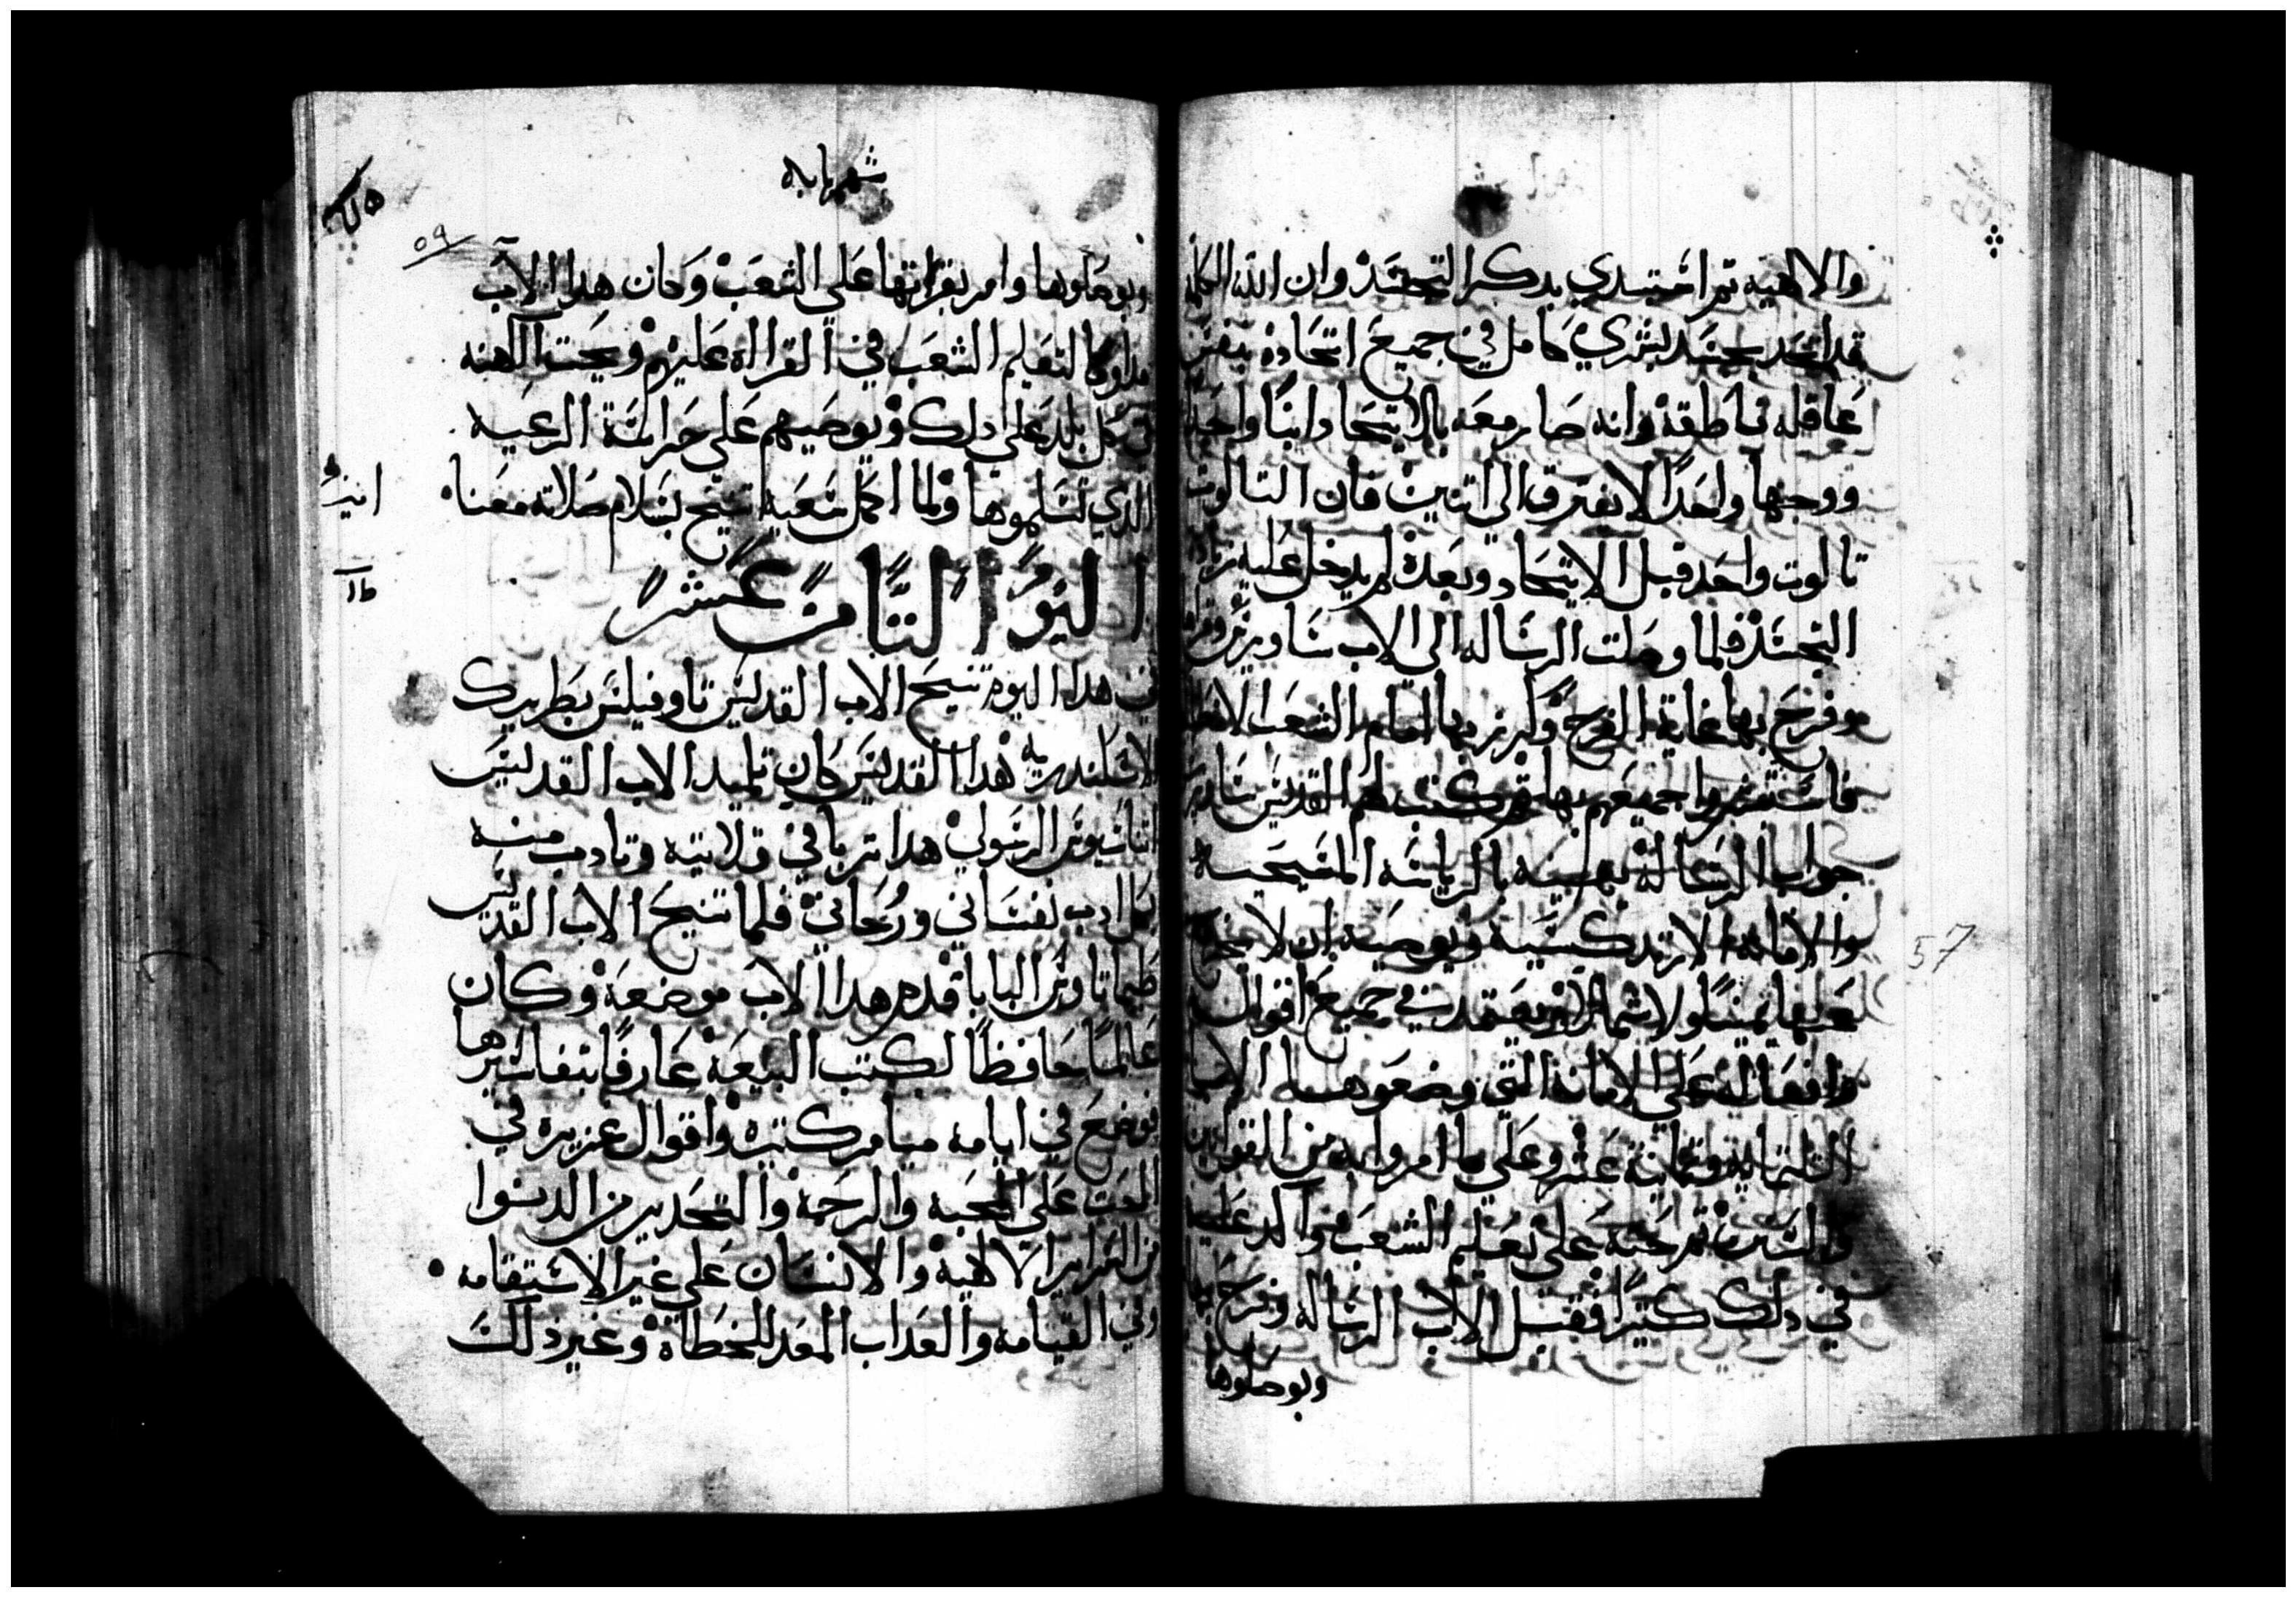 والالاهيه تم ابتدي بدكر التجسد وان الله الكلمه
قد اتحد بجسد بشري كامل في جميع اتحاده بنفس
عاقله ناطقه وانه صار معه بالاتحاد ابنا واحدا
ووجها واحدا لا يفترق الي اتنين فان التالوت
تالوت واحد قبل الاتحاد وبعده لم يدخل عليه زياده
التجسد فلما وصلت الرساله الي الاب ساويرس وقراها
وفرح بها غاية الفرح وكرز بها امام الشعب الانطاكي
فاستبشروا جميعهم بها تم كتب لهم القديس ساويرس
جواب الرساله يهنيه بالرياسه المسيحيه
والامانه الارتدكسيه ويوصيه ان لا يخرج
عنها يمينا ولا شمالا وان يعتمد في جميع اقواله
وافعاله علي الامانة التي وضعوها الابا
التلتمايه وتمانية عشر وعلي ما امروا به من القوانين
والسنن تم حته علي تعليم الشعب
في دلك كتيرا فقبل الاب الرساله وفرح بها
وبوصلوها
شهر بابه
٥٩
57
وبوصلوها وامر بقراتها علي الشعب وكان هدا الاب
مداوما لتعليم الشعب في القراه عليهم ويحت الكهنه
في كل بلد علي دلك ويوصيهم علي حراسة الرعيه
الدي تسلموها ولما اكمل سعيه اتنيح بسلام صلاته معنا
اليوم التامن عشر
في هدا اليوم تنيح الاب القديس تاوفيلس بطريرك
الاسكندريه هدا القديس كان تلميد الاب القديس
اتناسيوس الرسولي هدا تربا في قلايته وتادب منه
بكل ادب نفساني وروحاني فلما تنيح الاب القديس
طيماتاوس البابا قدم هدا الاب موضعه وكان
عالما حافظا لكتب البيعه عارفا بتفاسيرها
فوضع في ايامه ميامر كتيره واقوال غزيره في
الحت علي المحبه والرحمه والتحدير من الدنوا
من السراير الالاهيه والانسان علي غير الاستقامه
وفي القيامه والعداب المعد للخطاة وغير دلك